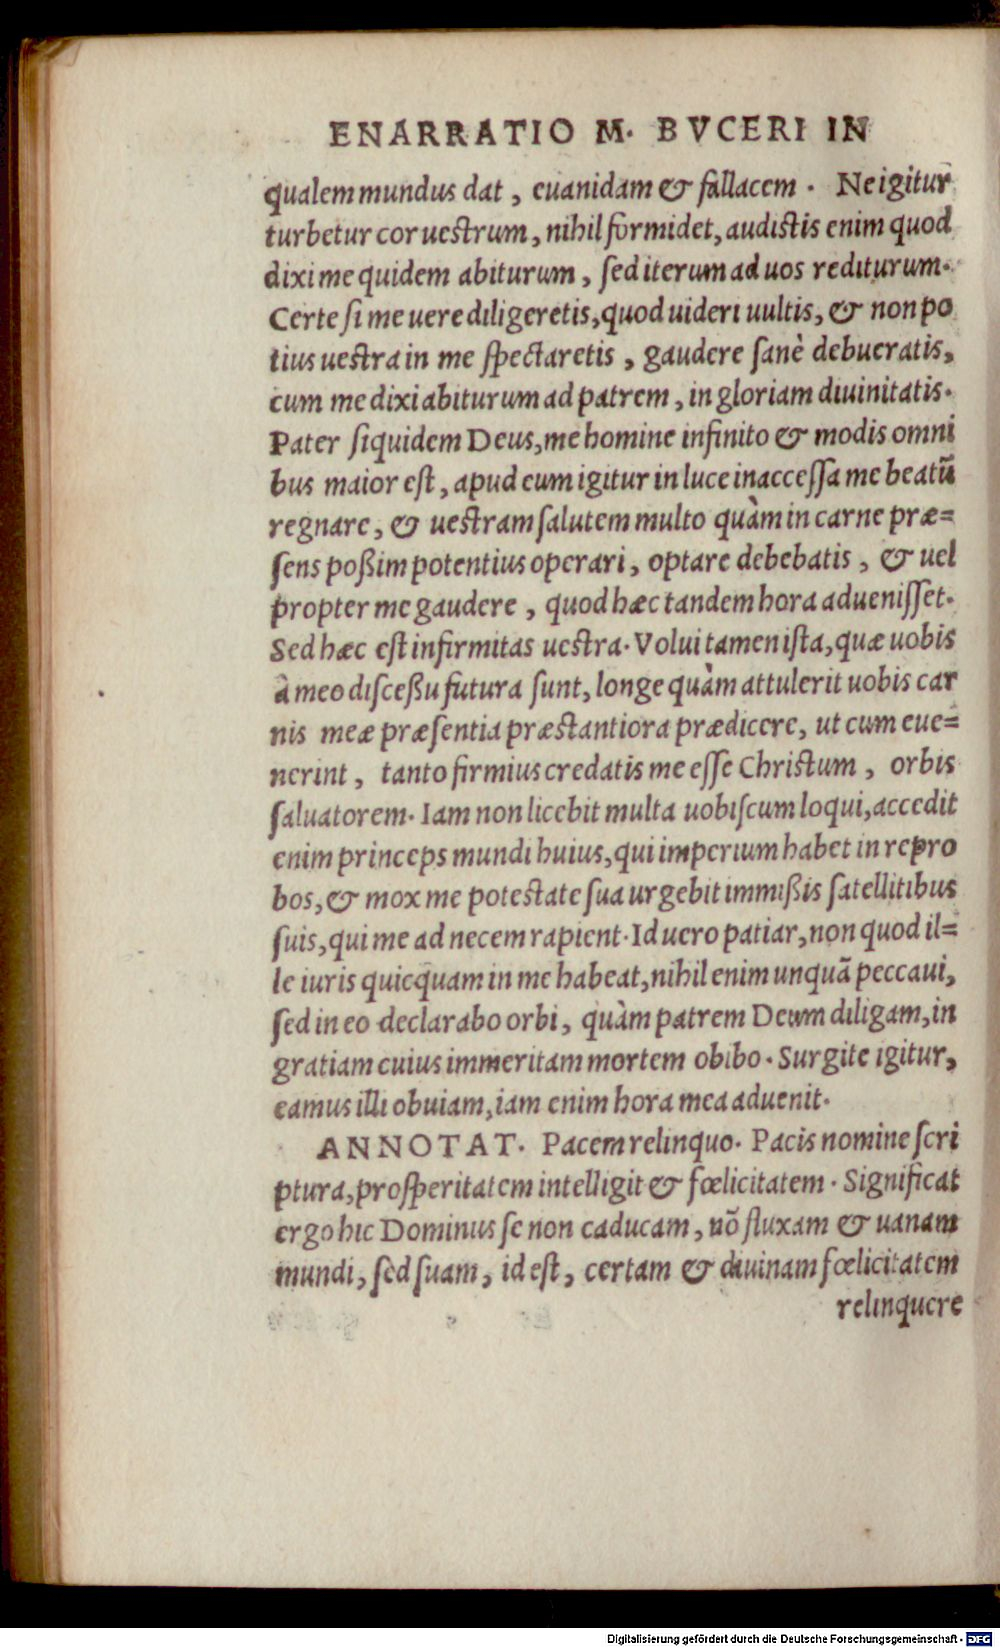 ENARRATIO M. BVCERI IN
qualem mundus dat, euanidam & fallacem. Ne igitur
turbetur cor uestrum, nihil formidet, audistis enim quod
dixi me quidem abiturum, sed iterum ad uos rediturum.
Certe si me uere diligeretis, quod uideri uultis, & non po
tius uestra in me spectaretis, gaudere sanè debueratis,
cum me dixi abiturum ad patrem, in gloriam diuinitatis.
Pater siquidem Deus, me homine infinito & modis omni
bus maior est, apud eum igitur in luce inaccessa me beatū
regnare, & uestram salutem multo quàm in carne præ=
sens poßim potentius operari, optare debebatis, & uel
propter me gaudere, quod hæc tandem hora aduenisset.
Sed hæc est infirmitas uestra. Volui tamen ista, quæ uobis
à meo disceßu futura sunt, longe quàm attulerit uobis car
nis meæ præsentia præstantiora prædicere, ut cum eue=
nerint, tanto firmius credatis me esse Christum, orbis
saluatorem. Iam non licebit multa uobiscum loqui, accedit
enim princeps mundi huius, qui imperium habet in repro
bos, & mox me potestate sua urgebit immißis satellitibus
suis, qui me ad necem rapient. Id uero patiar, non quod il=
le iuris quicquam in me habeat, nihil enim unquā peccaui,
sed in eo declarabo orbi, quàm patrem Deum diligam, in
gratiam cuius immeritam mortem obibo. Surgite igitur,
eamus illi obuiam, iam enim hora mea aduenit.
ANNOTAT. Pacem relinquo. Pacis nomine scri
ptura, prosperitatem intelligit & fœlicitatem. Significat
ergo hic Dominus se non caducam, nō fluxam & uanam
mundi, sed suam, id est, certam & diuinam fœlicitatem
relinquere
Digitalisierung gefördert durch die Deutsche Forschungsgemeinschaft - DFG